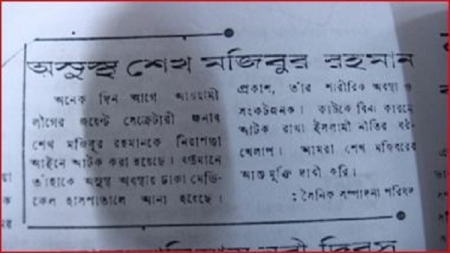 অসুস্থ শেখ মজিবুর রহমান
অনেক দিন আগে আওয়ামী
লীগের জয়েন্ট সেক্রেটারী জনাব
শেখ মজিবুর রহমানকে নিরাপত্তা
আইনে আটক করা হয়েছে। বর্ত্তমানে
তাঁহাকে অসুস্থ অবস্থায় ঢাকা মেডি-
কেল হাসপাতালে আনা হয়েছে।
প্রকাশ, তাঁর শারীরিক অবস্থা
সংকটজনক। কাউকে বিনা কারনে
আটক রাখা ইসলামী নীতির বর-
খেলাপ। আমরা শেখ মজিবরের
আশু মুক্তি দাবী করি।
: সৈনিক সম্পাদনা পরিষদ